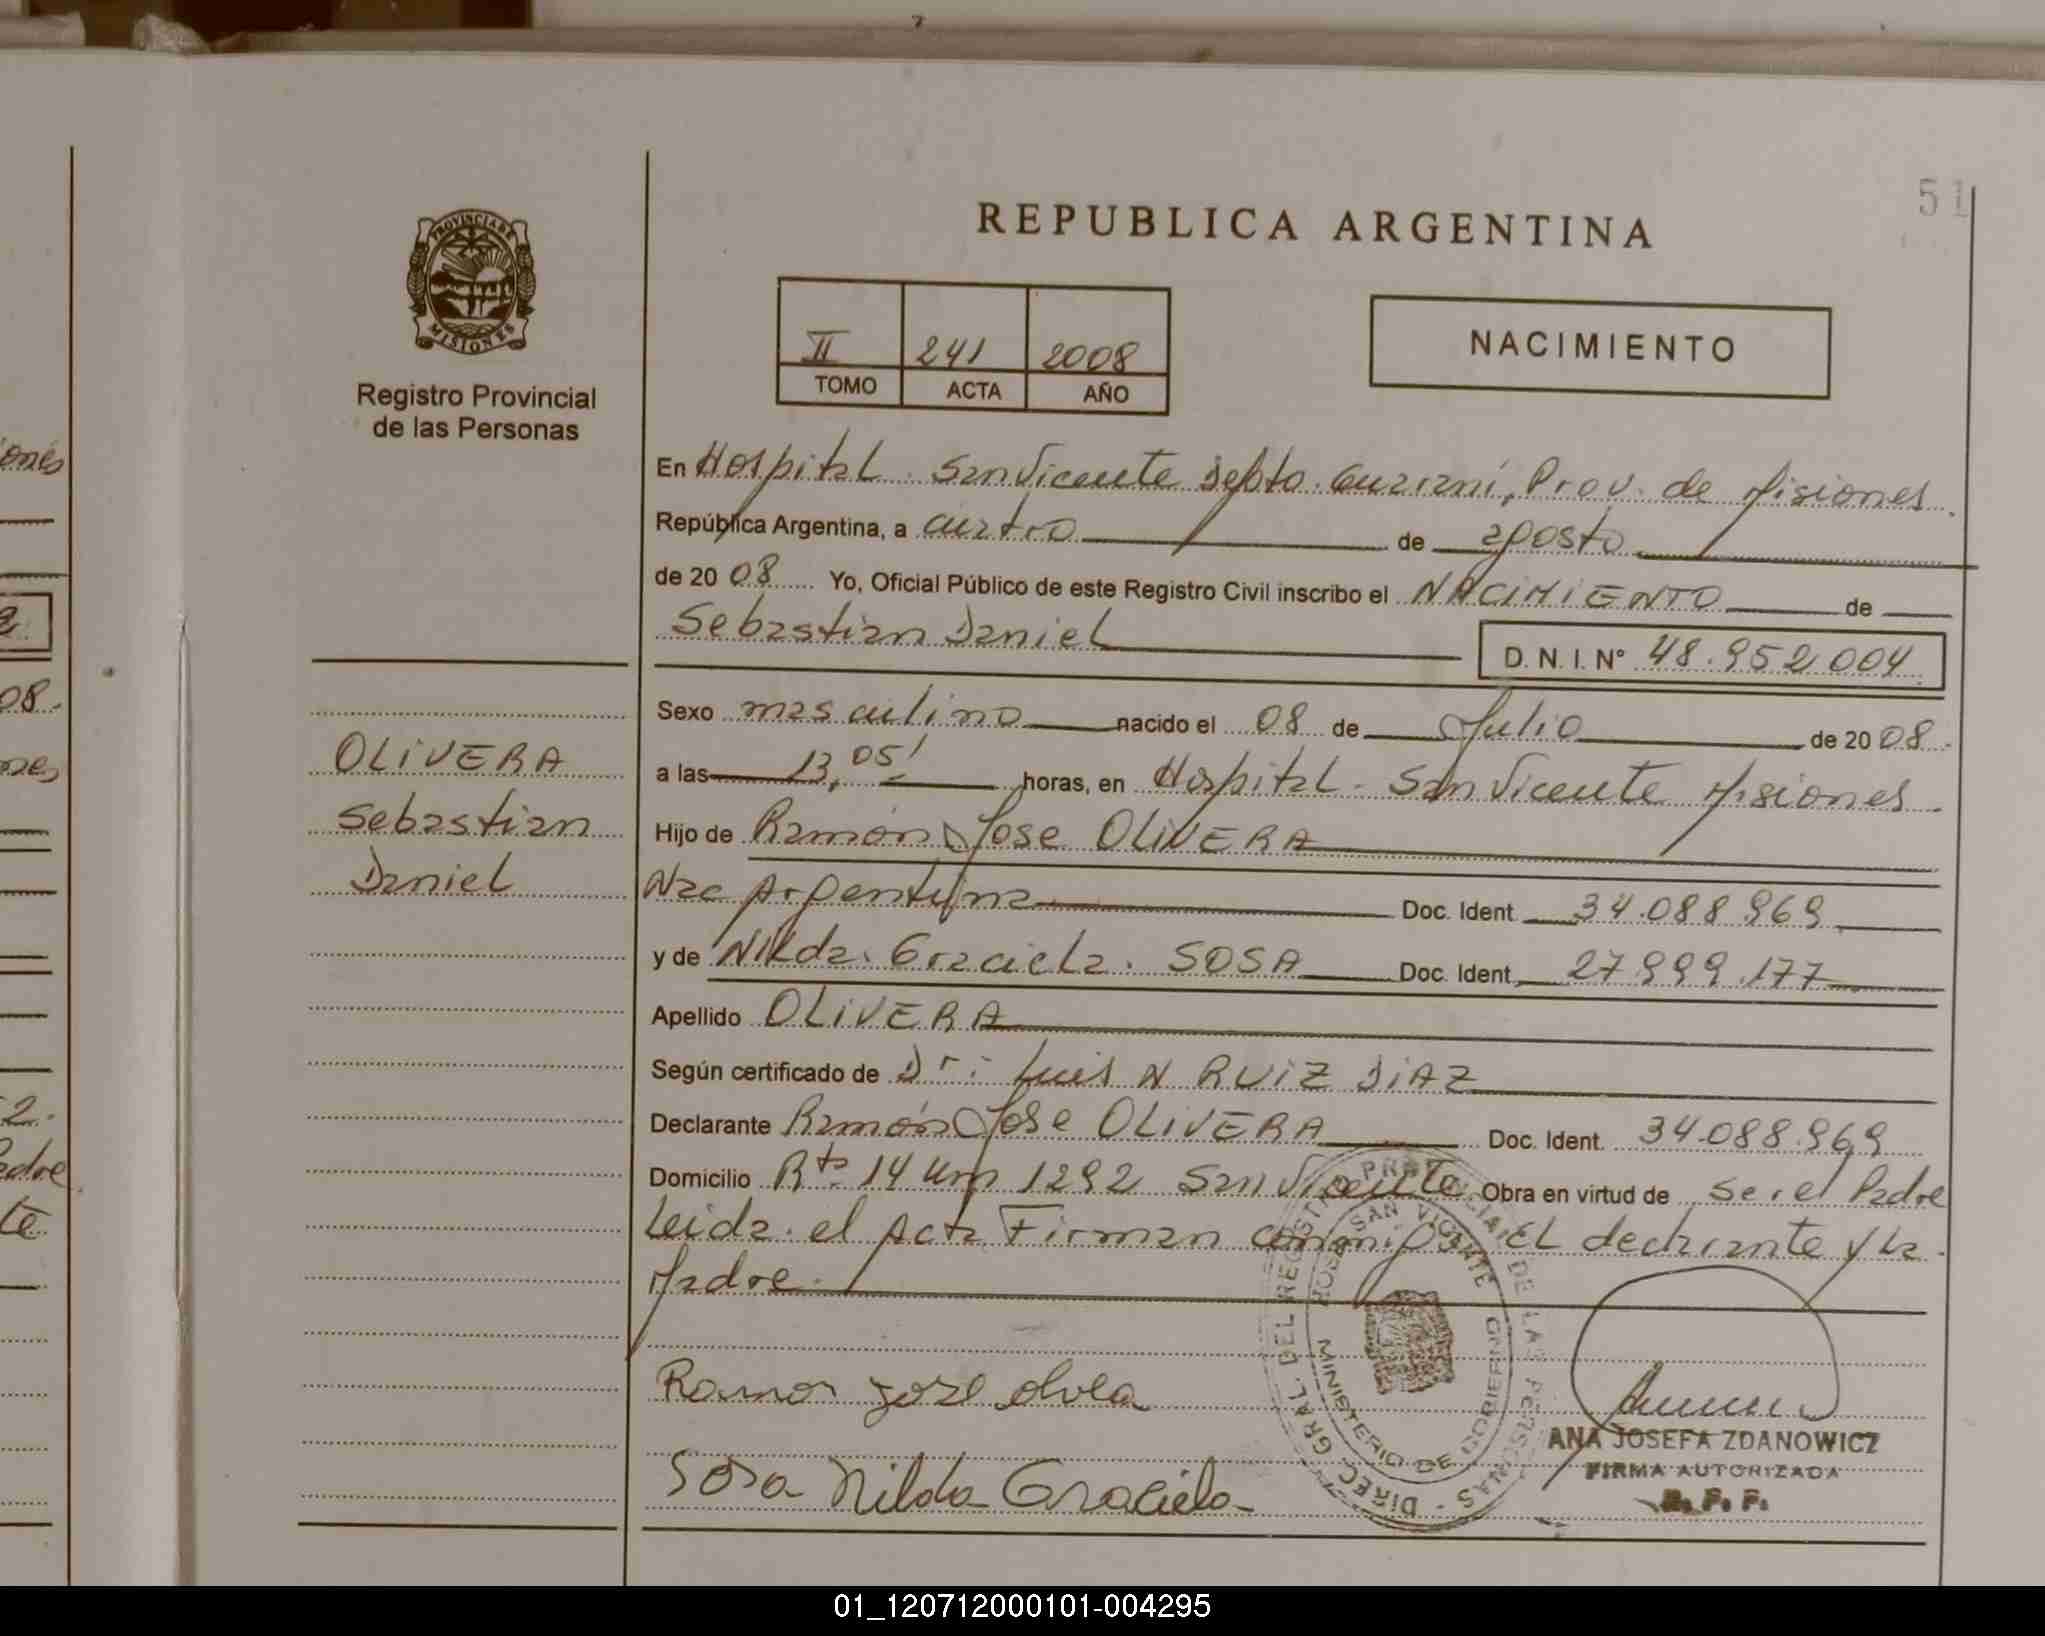 51
REPUBLICA ARGENTINA
PROVINCIA DE
MISIONES
Registro Provincial
de las Personas
II 241 2008
TOMO ACTA AÑO
NACIMIENTO
En Hospital San Vicente Depto. Guaraní, Prov. de Misiones
República Argentina, a cuatro de agosto
de 20 08 Yo, Oficial Público de este Registro Civil inscribo el NACIMIENTO de
Sebastian Daniel D. N. I. N° 48.952004
Sexo masculino nacido el 08 de Julio de 20 08
a las 13,05' horas, en Hospital - San Vicente Misiones
Hijo de Ramón Jose OLIVERA
Nac Argentina Doc. Ident 34.088.969
y de Nilda Graciela SOSA Doc. Ident. 27.999.177
Apellido OLIVERA
Según certificado de Dr: Luis N RUIZ DIAZ
Declarante Ramón Jose OLIVERA Doc. Ident. 34.088.969
Domicilio Rta 14 Km 1292 San Vicente Obra en virtud de ser el Padre
Leida el Acta Firman conmigo EL declarante y La
Madre
OLIVERA
Sebastian
Daniel
Ramon Jose
Sosa Nilda Graciela
DIREC. GRAL. DEL REGISTRO PROVINCIAL DE LAS PERSONAS
HOSP. SAN VICENTE
MINISTERIO DE GOBIERNO
ANA JOSEFA ZDANOWICZ
FIRMA AUTORIZADA
R. P. P.
ones
08.
nes
2.
Padre
te
01_120712000101-004295